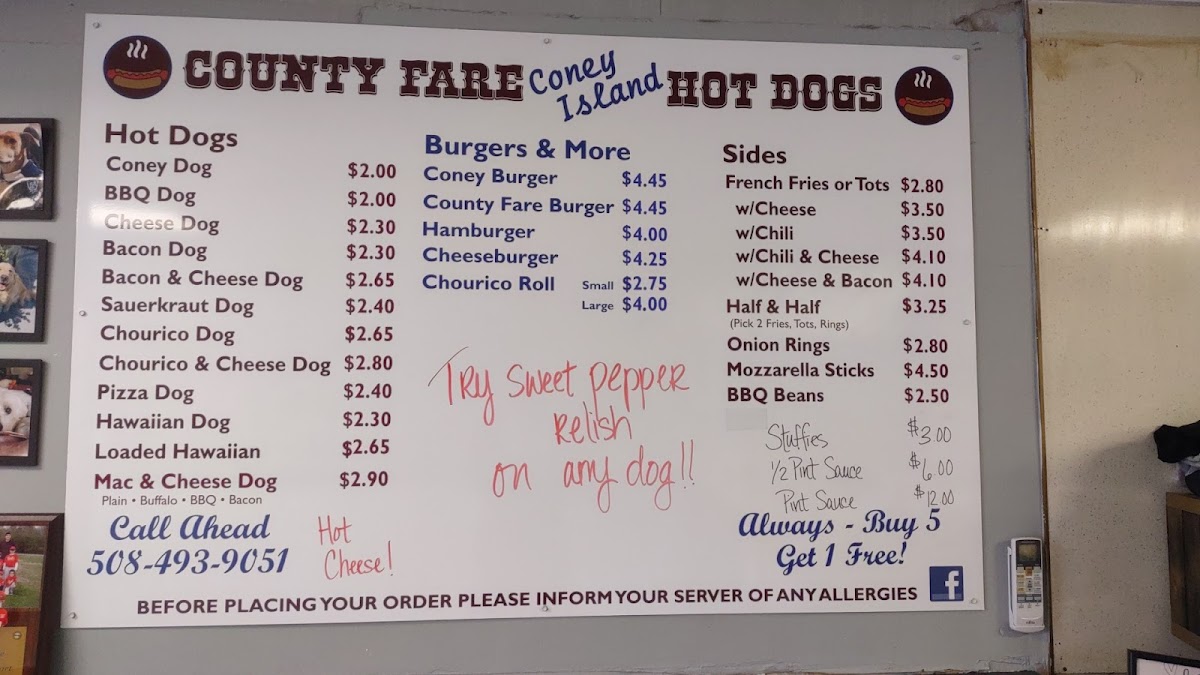 COUNTY FARE Coney Island HOT DOGS
Hot Dogs
Coney Dog $2.00
BBQ Dog $2.00
Cheese Dog $2.30
Bacon Dog $2.30
Bacon & Cheese Dog $2.65
Sauerkraut Dog $2.40
Chourico Dog $2.65
Chourico & Cheese Dog $2.80
Pizza Dog $2.40
Hawaiian Dog $2.30
Loaded Hawaiian $2.65
Mac & Cheese Dog $2.90
Plain • Buffalo • BBQ • Bacon
Call Ahead
508-493-9051
Hot
Cheese!
Burgers & More
Coney Burger $4.45
County Fare Burger $4.45
Hamburger $4.00
Cheeseburger $4.25
Chourico Roll Small $2.75
Large $4.00
Try Sweet Pepper
Relish
on any dog!!
Sides
French Fries or Tots $2.80
w/Cheese $3.50
w/Chili $3.50
w/Chili & Cheese $4.10
w/Cheese & Bacon $4.10
Half & Half $3.25
(Pick 2 Fries, Tots, Rings)
Onion Rings $2.80
Mozzarella Sticks $4.50
BBQ Beans $2.50
Stuffies $3.00
1/2 Pint Sauce $6.00
Pint Sauce $12.00
Always - Buy 5
Get 1 Free!
BEFORE PLACING YOUR ORDER PLEASE INFORM YOUR SERVER OF ANY ALLERGIES
f